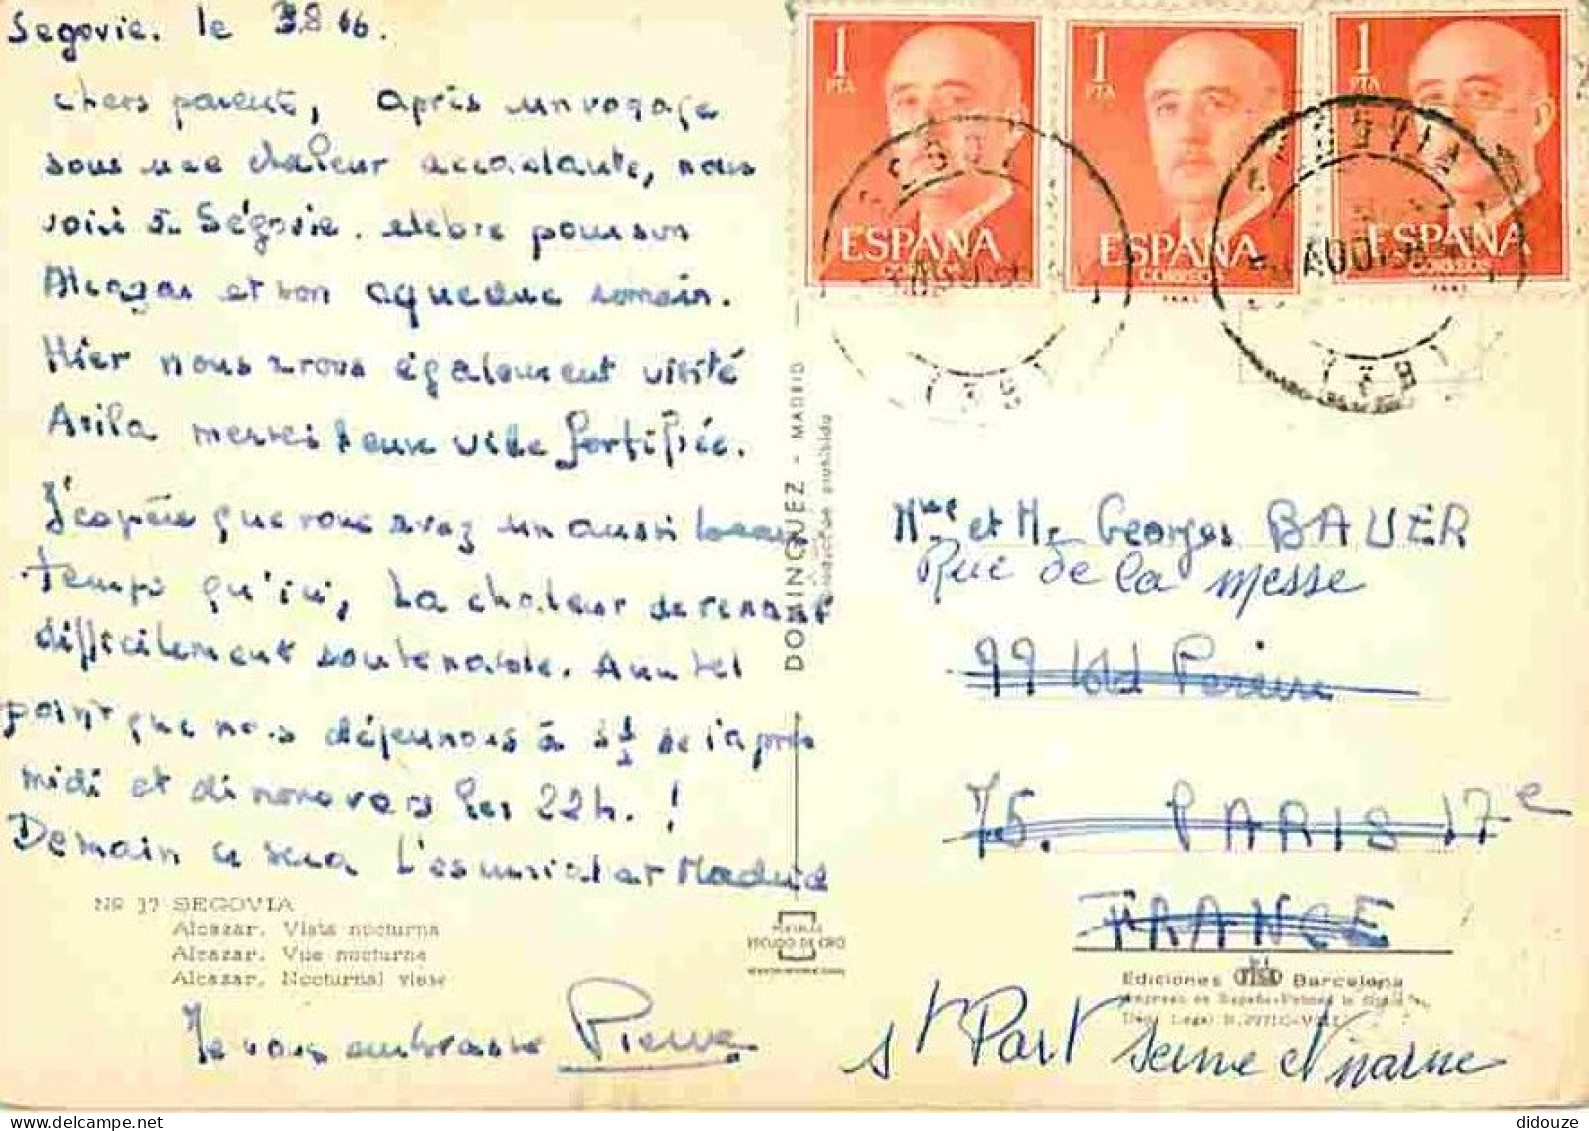 Segovie. le 3 8 66.
chers parents, après un voyage
sous une chaleur accablante, nous
voici à Ségovie. célèbre pour son
Alcazar et son aqueduc romain.
Hier nous avons également visité
Avila merveilleuse ville fortifiée.
J'espère que vous avez un aussi beau
temps qu'ici, La chaleur devenant
difficilement soutenable. Au tel
point que nous déjeunons à 3 1/2 de l'après
midi et dinons vers les 22h. !
Demain ce sera L'escurial et Madrid
Je vous embrasse Pierre
NR 37 SEGOVIA
Alcazar. Vista nocturna
Alcazar. Vue nocturne
Alcazar. Nocturnal view
DOMINGUEZ - MADRID
Reproduccion prohibida
ESCUDO DE ORO
1 PTA
ESPAÑA
CORREOS
1 PTA
ESPAÑA
CORREOS
1 PTA
ESPAÑA
CORREOS
SEGOVIA
Mme et Mr Georges BAUER
Rue de la messe
99 bld Pereire
75. PARIS 17e
FRANCE
St Port Seine et Marne
Ediciones Barcelona
didouze